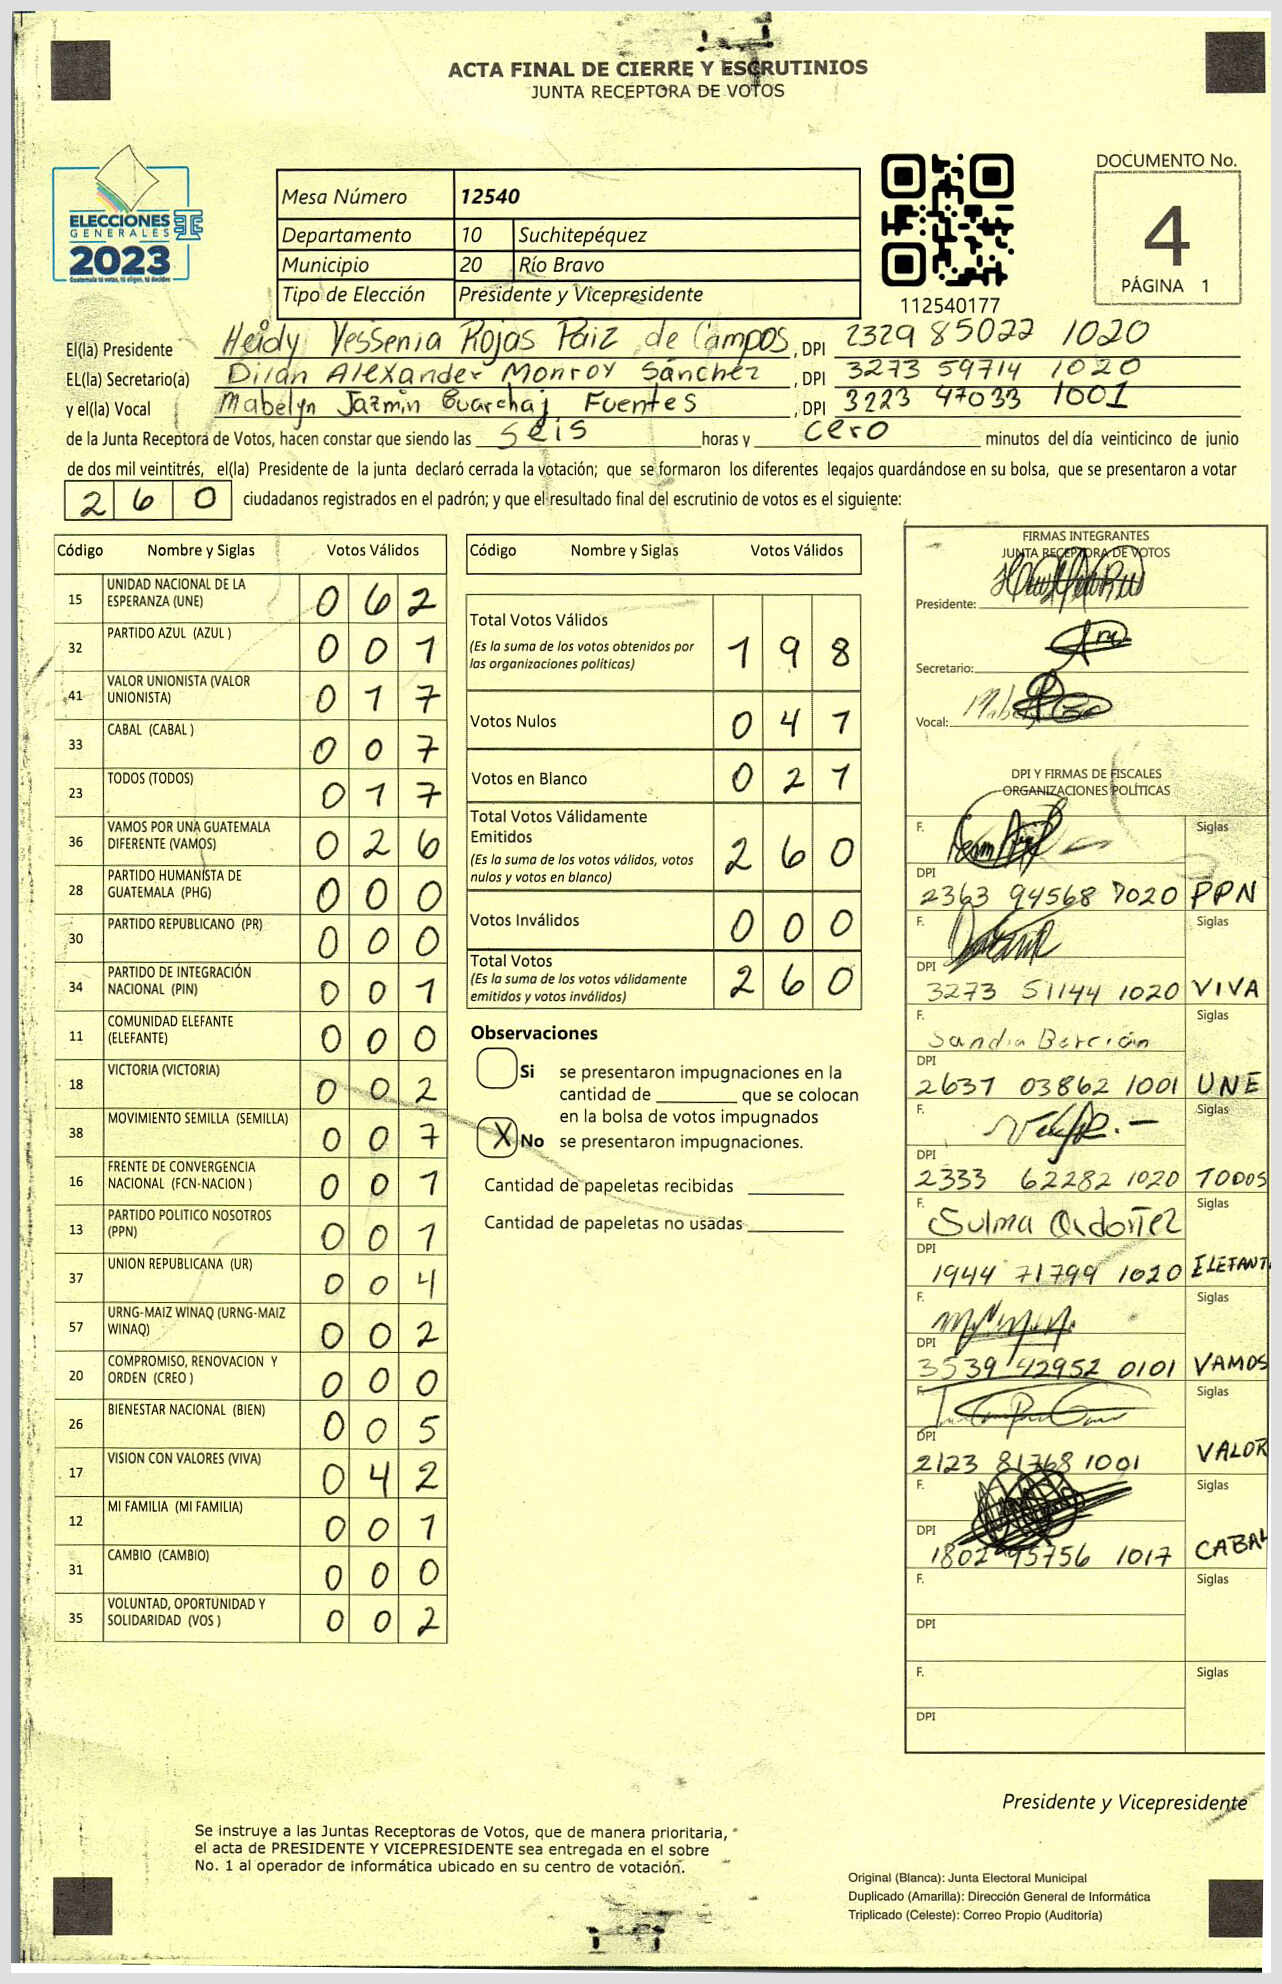 ACTA FINAL DE CIERRE Y ESCRUTINIOS
JUNTA RECEPTORA DE VOTOS
ELECCIONES
GENERALES
2023
Guatemala tu votas, tú eliges, tú decides
Mesa Número 12540
Departamento 10 Suchitepéquez
Municipio 20 Río Bravo
Tipo de Elección Presidente y Vicepresidente
112540177
DOCUMENTO No.
4
PÁGINA 1
El(la) Presidente Heidy Yessenia Rojas Paiz de Campos, DPI 2329 85022 1020
EL(la) Secretario(a) Dilan Alexander Monroy Sánchez, DPI 3273 59714 1020
y el(la) Vocal Mabelyn Jazmin Guarchaj Fuentes, DPI 3223 47033 1001
de la Junta Receptora de Votos, hacen constar que siendo las seis horas y cero minutos del día veinticinco de junio
de dos mil veintitrés, el(la) Presidente de la junta declaró cerrada la votación; que se formaron los diferentes legajos guardándose en su bolsa, que se presentaron a votar
260 ciudadanos registrados en el padrón; y que el resultado final del escrutinio de votos es el siguiente:
Código Nombre y Siglas Votos Válidos
15 UNIDAD NACIONAL DE LA ESPERANZA (UNE) 062
32 PARTIDO AZUL (AZUL ) 001
41 VALOR UNIONISTA (VALOR UNIONISTA) 017
33 CABAL (CABAL ) 007
23 TODOS (TODOS) 017
36 VAMOS POR UNA GUATEMALA DIFERENTE (VAMOS) 026
28 PARTIDO HUMANISTA DE GUATEMALA (PHG) 000
30 PARTIDO REPUBLICANO (PR) 000
34 PARTIDO DE INTEGRACIÓN NACIONAL (PIN) 001
11 COMUNIDAD ELEFANTE (ELEFANTE) 000
18 VICTORIA (VICTORIA) 002
38 MOVIMIENTO SEMILLA (SEMILLA) 007
16 FRENTE DE CONVERGENCIA NACIONAL (FCN-NACION ) 001
13 PARTIDO POLITICO NOSOTROS (PPN) 001
37 UNION REPUBLICANA (UR) 004
57 URNG-MAIZ WINAQ (URNG-MAIZ WINAQ) 002
20 COMPROMISO, RENOVACION Y ORDEN (CREO ) 000
26 BIENESTAR NACIONAL (BIEN) 005
17 VISION CON VALORES (VIVA) 042
12 MI FAMILIA (MI FAMILIA) 001
31 CAMBIO (CAMBIO) 000
35 VOLUNTAD, OPORTUNIDAD Y SOLIDARIDAD (VOS ) 002
Código Nombre y Siglas Votos Válidos
Total Votos Válidos 198
(Es la suma de los votos obtenidos por
las organizaciones políticas)
Votos Nulos 041
Votos en Blanco 021
Total Votos Válidamente
Emitidos 260
(Es la suma de los votos válidos, votos
nulos y votos en blanco)
Votos Inválidos 000
Total Votos 260
(Es la suma de los votos válidamente
emitidos y votos inválidos)
Observaciones
Si se presentaron impugnaciones en la
cantidad de ________ que se colocan
en la bolsa de votos impugnados
X No se presentaron impugnaciones.
Cantidad de papeletas recibidas
Cantidad de papeletas no usadas
FIRMAS INTEGRANTES
JUNTA RECEPTORA DE VOTOS
Presidente:
Secretario:
Vocal:
DPI Y FIRMAS DE FISCALES
ORGANIZACIONES POLÍTICAS
F. Siglas
DPI
2363 94568 1020 PPN
F. Siglas
DPI
3273 51144 1020 VIVA
F. Siglas
Sandra Bercián
DPI
2637 03862 1001 UNE
F. Siglas
DPI
2333 62282 1020 TODOS
F. Siglas
Sulma Ordoñez
DPI
1944 71799 1020 ELEFANT
F. Siglas
DPI
3539 42952 0101 VAMOS
F. Siglas
DPI
2123 81768 1001 VALOR
F. Siglas
DPI
1802 95756 1017 CABAL
F. Siglas
DPI
F. Siglas
DPI
Presidente y Vicepresidente
Se instruye a las Juntas Receptoras de Votos, que de manera prioritaria,
el acta de PRESIDENTE Y VICEPRESIDENTE sea entregada en el sobre
No. 1 al operador de informática ubicado en su centro de votación.
Original (Blanca): Junta Electoral Municipal
Duplicado (Amarilla): Dirección General de Informática
Triplicado (Celeste): Correo Propio (Auditoría)